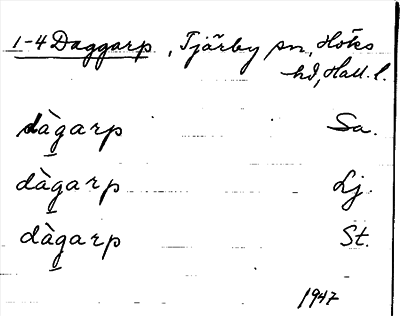 1-4 Daggarp, Tjärby sn, Höks
hd, Hall. l.
dàgarp Sa.
dàgarp Lj.
dàgarp St.
1947